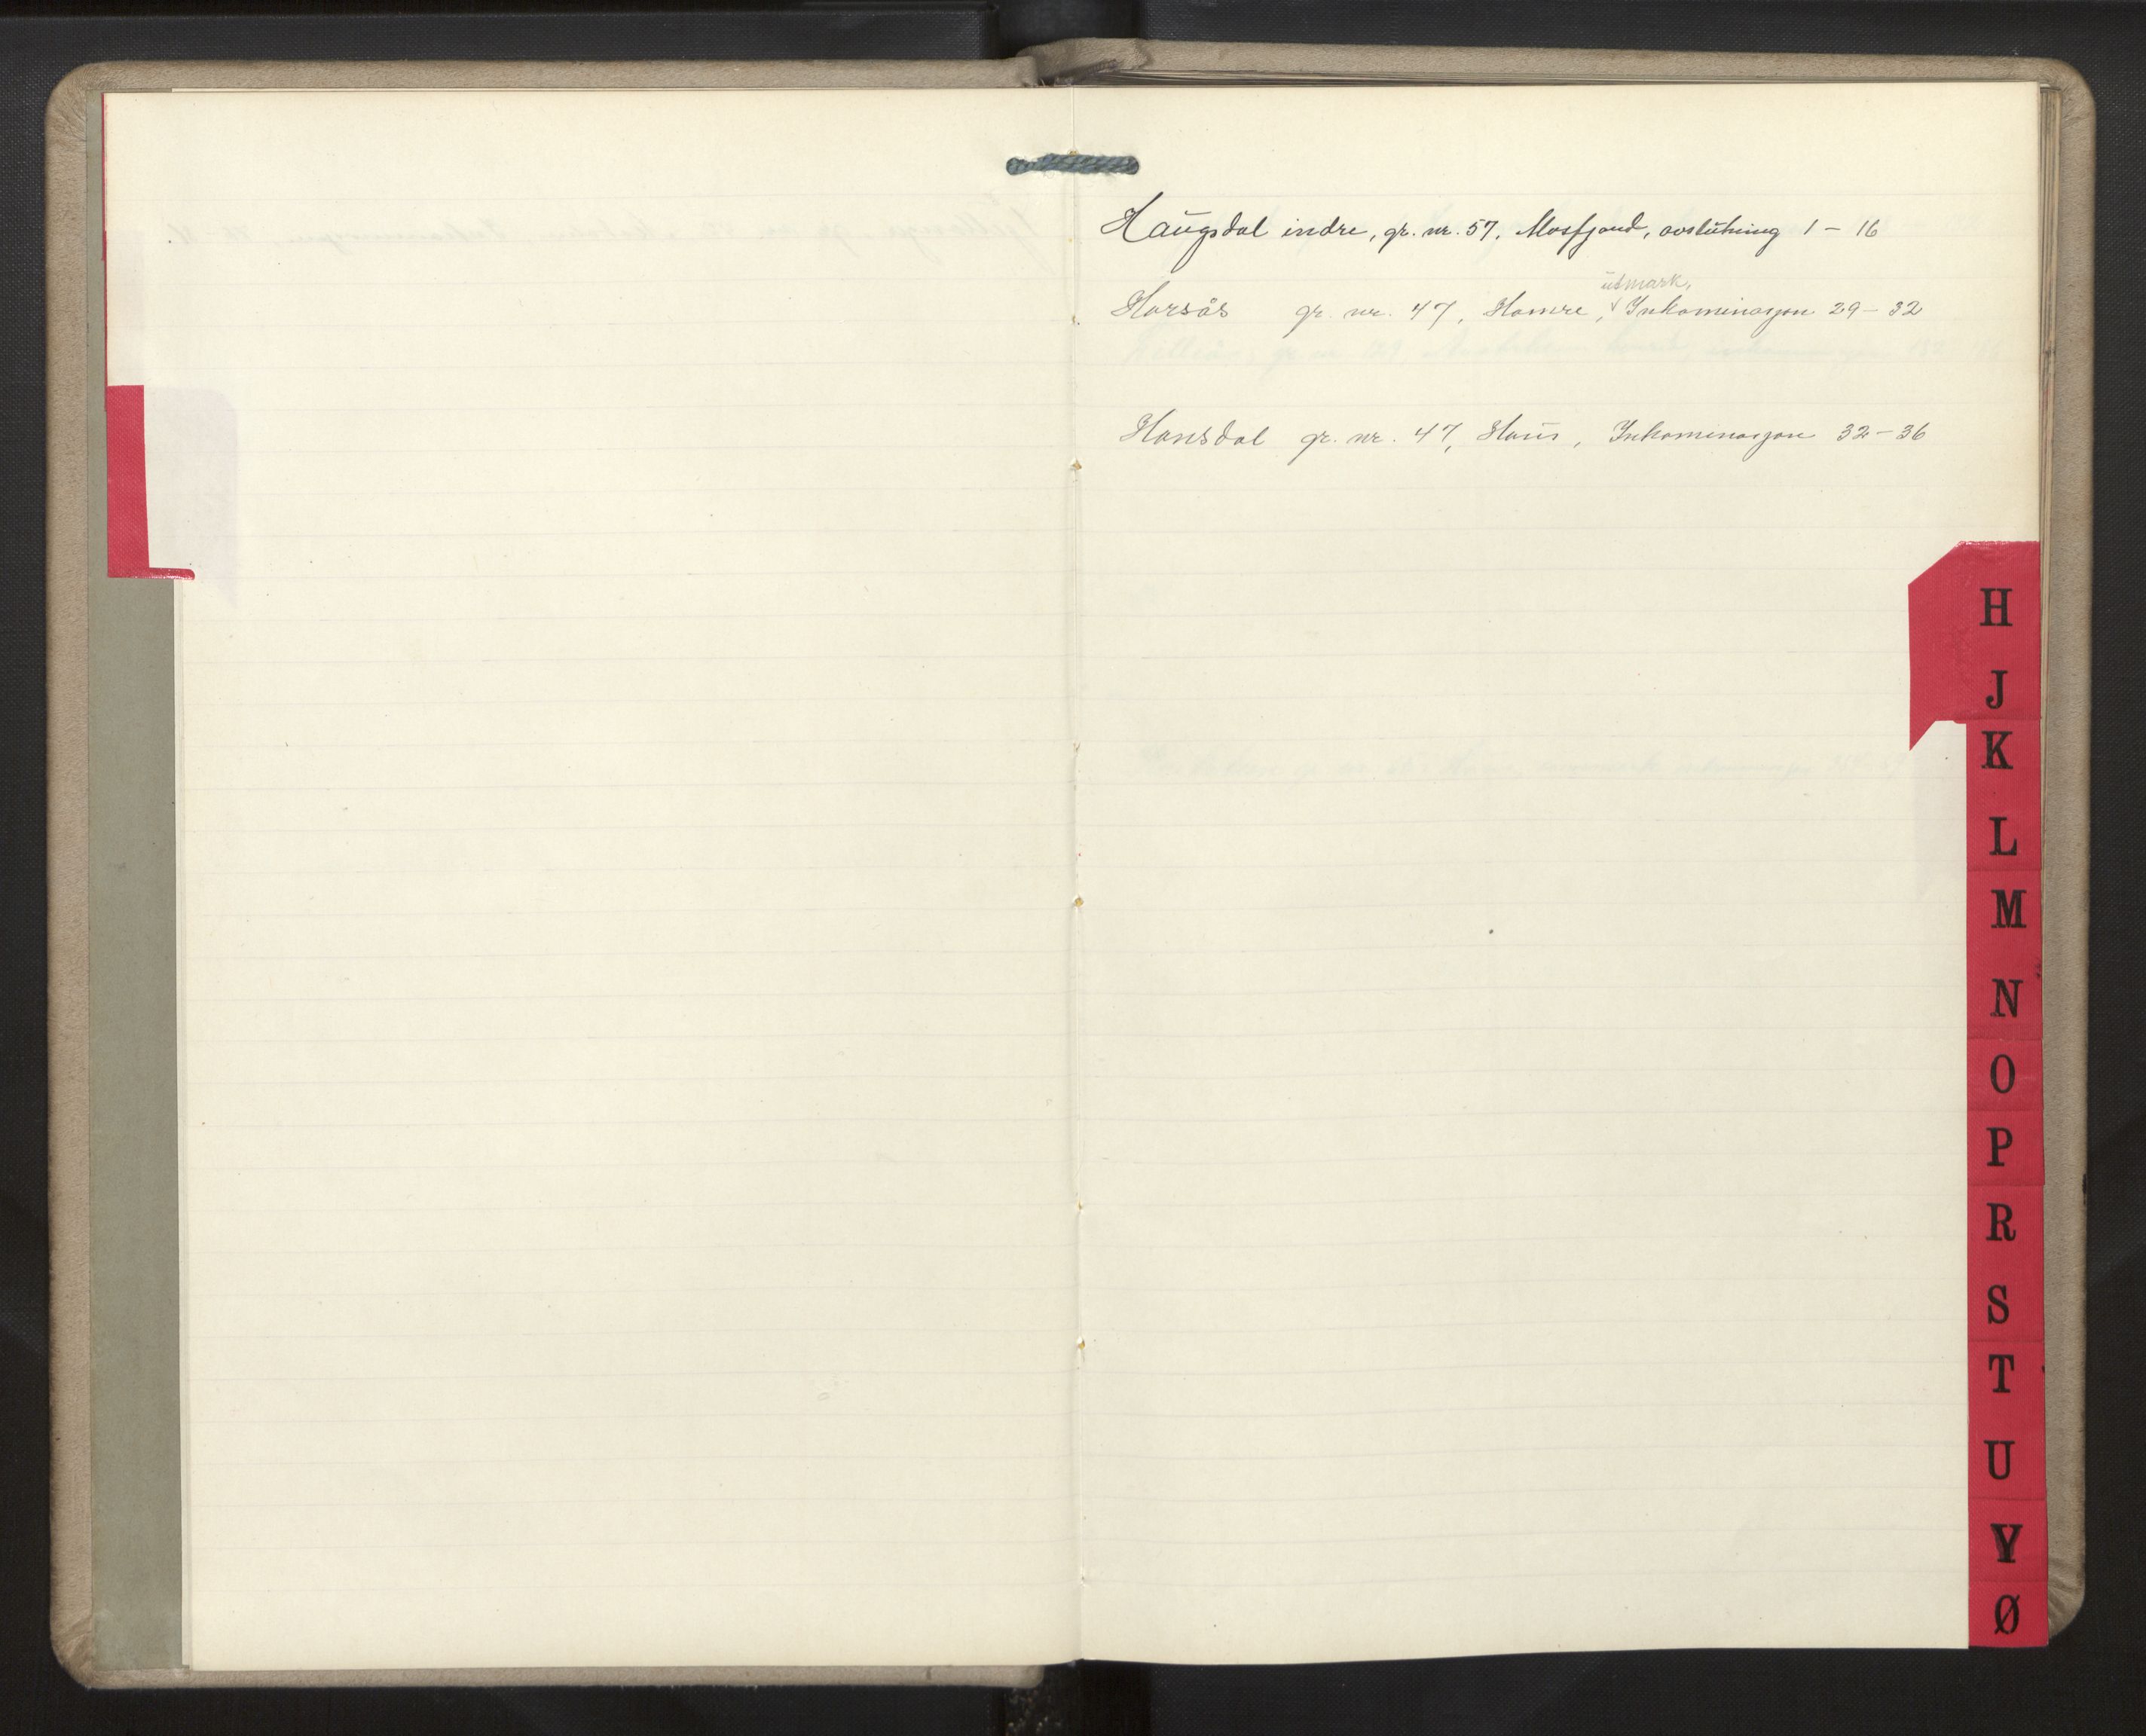 Haugsdal indre, gr. nr. 57, Mosfjord, avslutning 1 – 16
utmark,
Horsås gr. nr. 47, Hamre, Inkaminasjon 29 – 32
Hansdal gr. nr. 47, Haus, Inkaminasjon 32 – 36
H
J
K
L
M
N
O
P
R
S
T
U
V
Ø